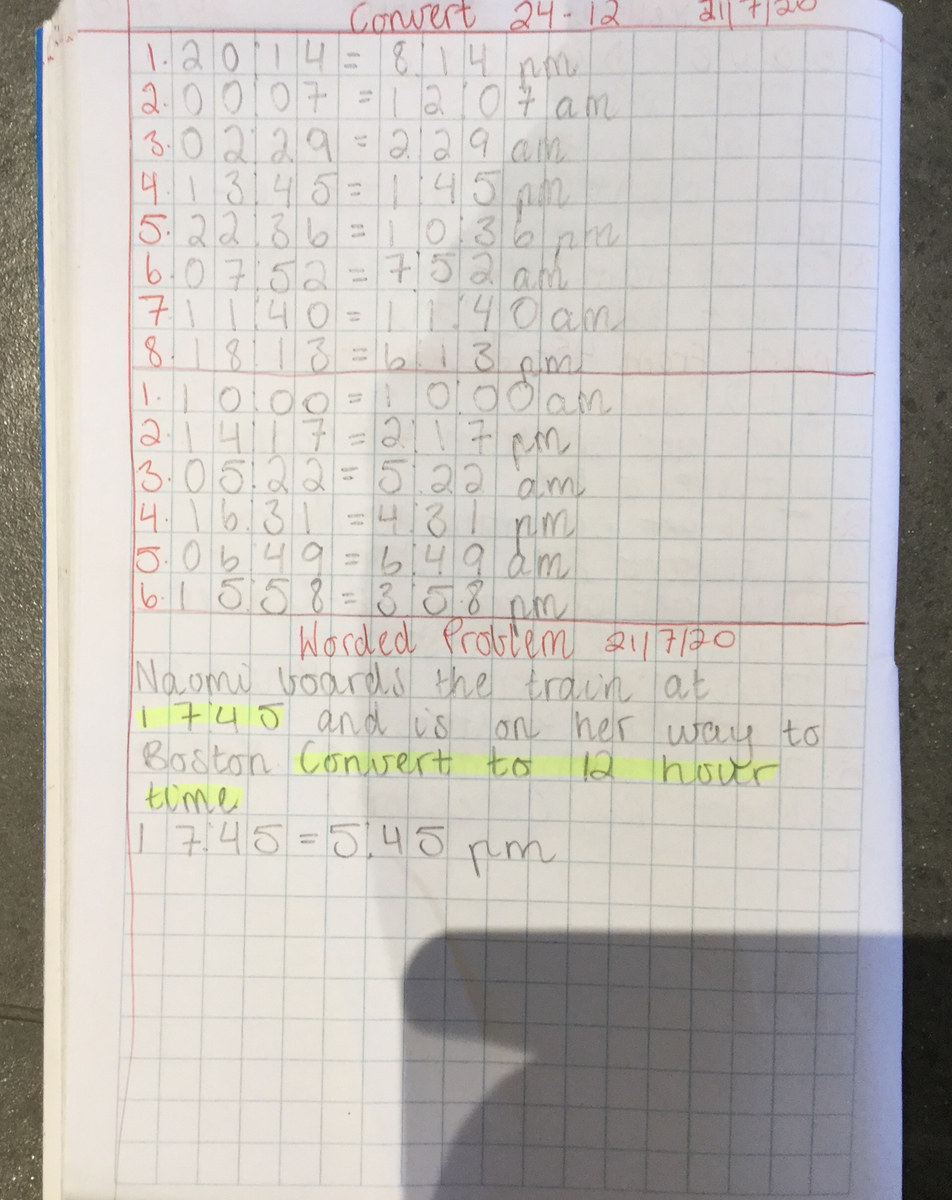 Convert 24-12 21/7/20
1. 20:14 = 8:14 pm
2. 00:07 = 12:07 am
3. 02:29 = 2:29 am
4. 13:45 = 1:45 pm
5. 22:36 = 10:36 pm
6. 07:52 = 7:52 am
7. 11:40 = 11:40 am
8. 18:13 = 6:13 pm
1. 10:00 = 10:00 am
2. 14:17 = 2:17 pm
3. 05:22 = 5:22 am
4. 16:31 = 4:31 pm
5. 06:49 = 6:49 am
6. 15:58 = 3:58 pm
Worded Problem 21/7/20
Naomi boards the train at
1745 and is on her way to
Boston Convert to 12 hour
time
17:45 = 5:45 pm